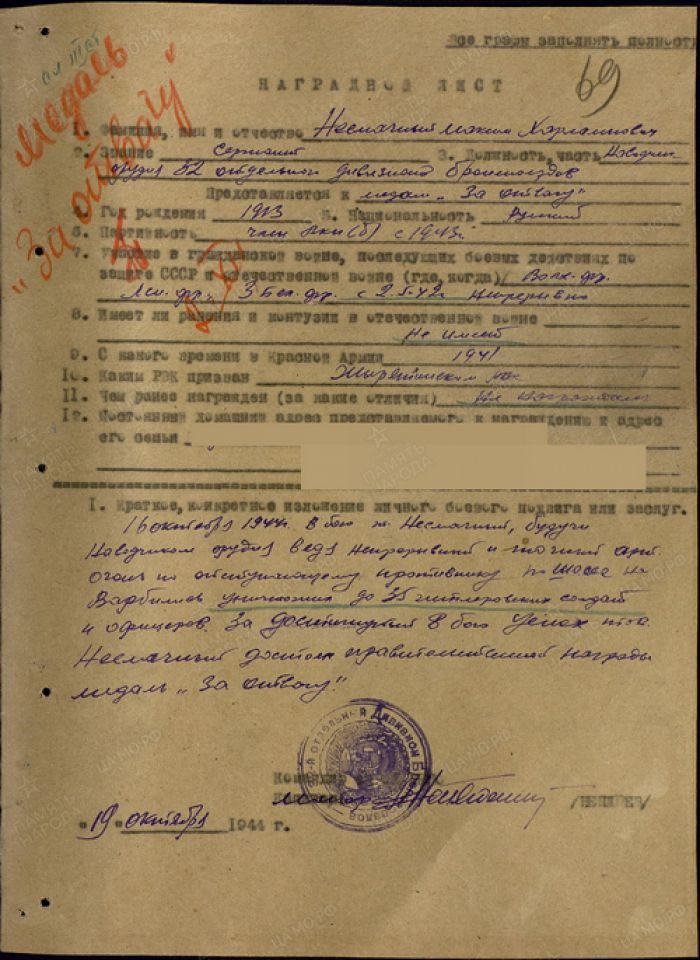 Все графы заполнять полност
69
Медаль
"За отвагу"
НАГРАДНОЙ ЛИСТ
1. Фамилия, имя и отчество Несмачный Максим
2. Звание сержант 3. Должность, часть Наводчик
орудия 52 отдельного дивизиона бронепоездов
Представляется к медали "За отвагу"
4. Год рождения 1913 5. Национальность Русский
6. Партийность член ВКП(б) с 1943г.
7. Участие в гражданской войне, последующих боевых действиях по
защите СССР и отечественной войне (где, когда) Волх. фр.
Лен. фр., 3 Бел. фр. с 2.5.42г. непрерывно
8. Имеет ли ранения и контузии в отечественной войне
Не имеет
9. С какого времени в Красной Армии 1941
10. Каким РВК призван Жирятинским РВК
11. Чем ранее награжден (за какие отличия) Не награждался
12. Постоянный домашний адрес представляемого к награждению и адрес
его семьи
1. Краткое, конкретное изложение личного боевого подвига или заслуг.
16 октября 1944г. в бою т. Несмачный, будучи
Наводчиком орудия ведя непрерывный и точный арт.
огонь по отступающему противнику по шоссе на
уничтожил до 35 гитлеровских солдат
и офицеров. За достигнутый в бою успех тов.
Несмачный достоин правительственной награды
медаль "За отвагу".
Командир
"19" октября 1944 г.